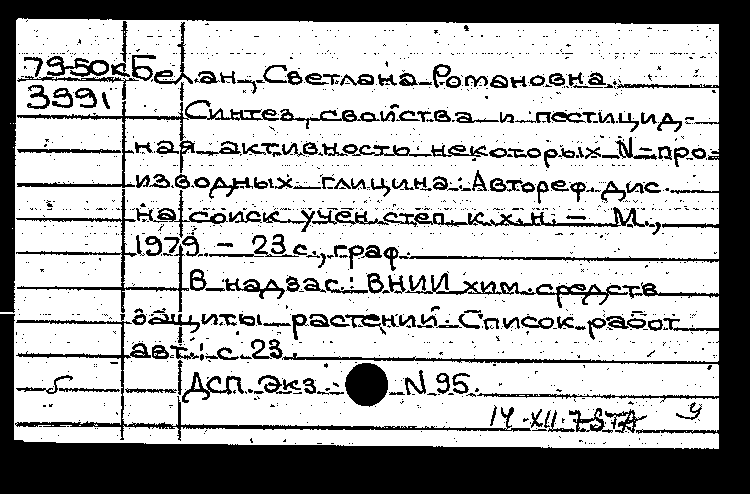 79-50к Белан, Светлана Романовна.
3991
Синтез, свойства и пестицид-
ная активность некоторых N-про-
изводных глицина: Автореф. дис.
на соиск. учен. степ. к.х.н. - М.,
1979 - 23 с., граф.
В надзас.: ВНИИ хим. средств
защиты растений. Список работ
авт.: с. 23.
ДСП. Экз. N 95.
14.XII.79